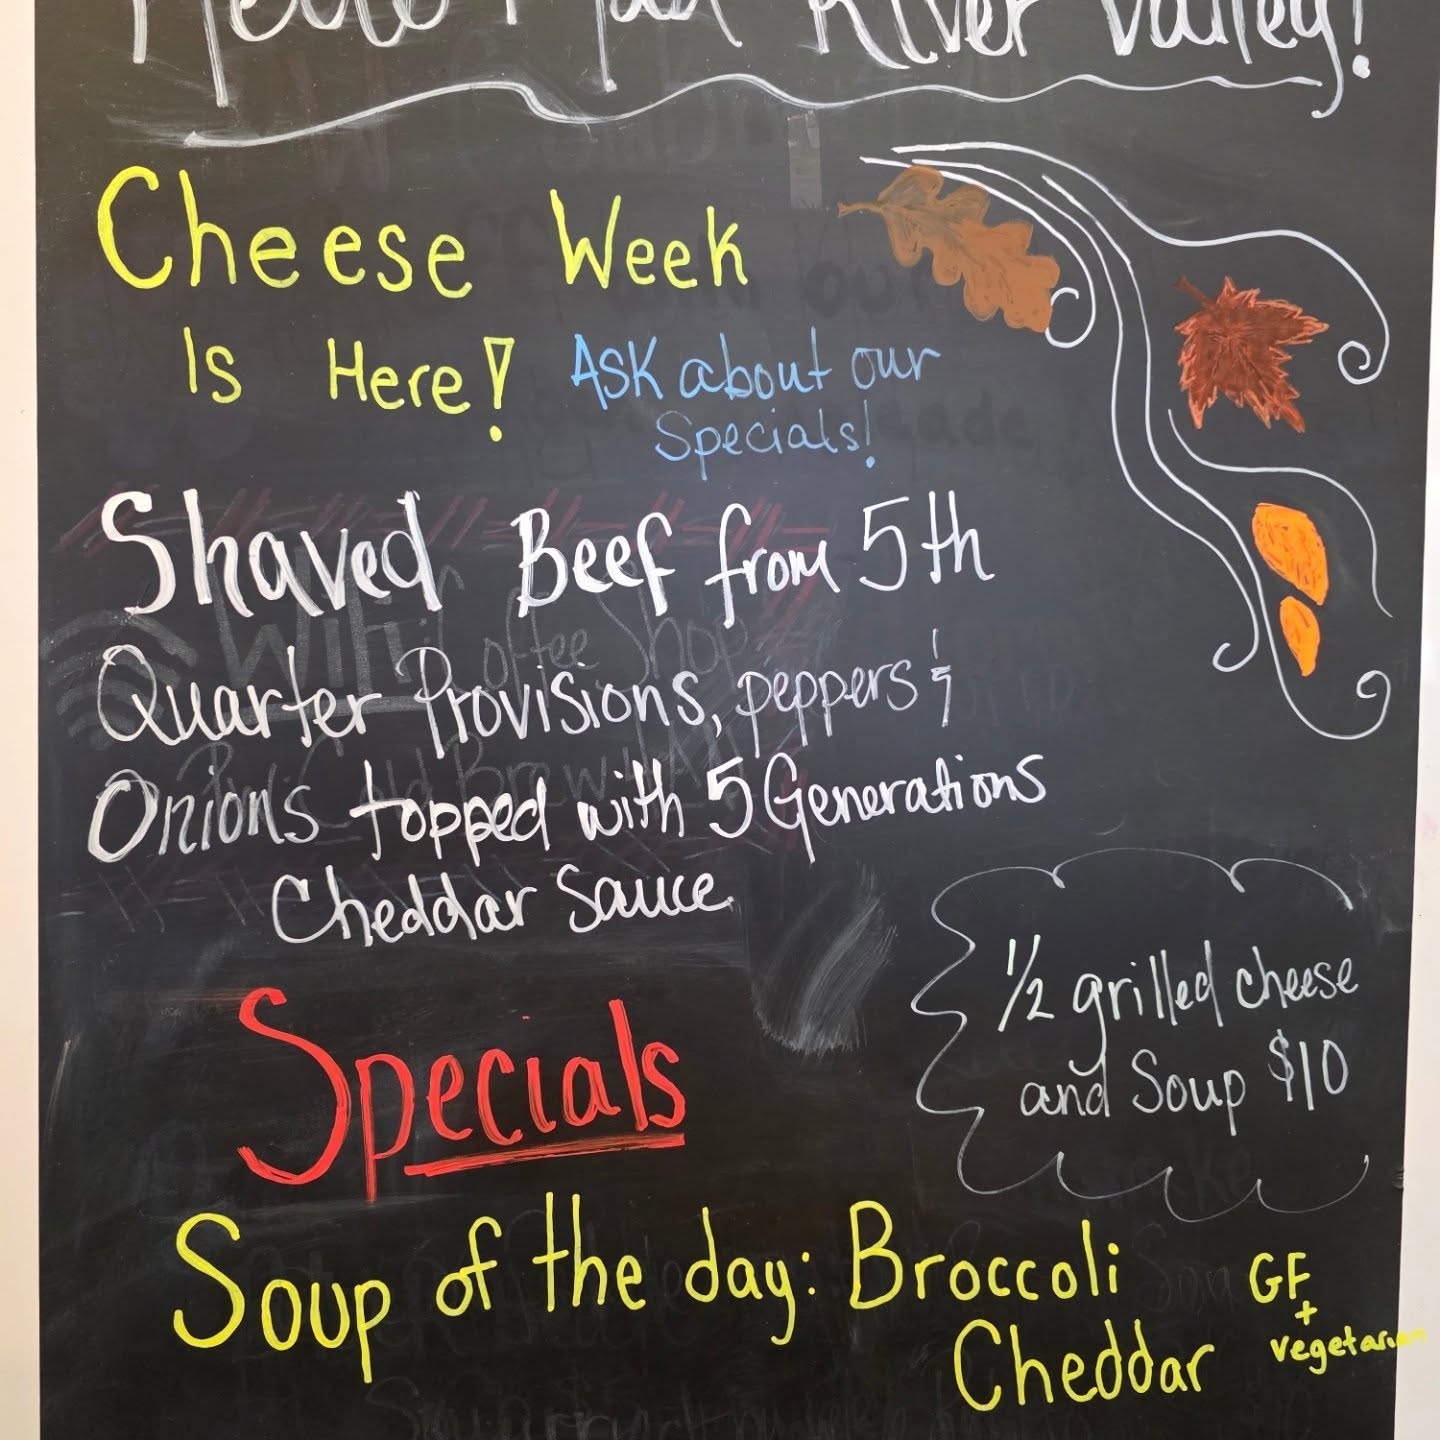 Hello Mad River Valley!
Cheese Week
Is Here!
Ask about our
Specials!
Shaved Beef from 5th
Quarter Provisions, peppers &
Onions topped with 5 Generations
Cheddar Sauce
1/2 grilled cheese
and Soup $10
Specials
Soup of the day: Broccoli
Cheddar
GF
+
vegetarian